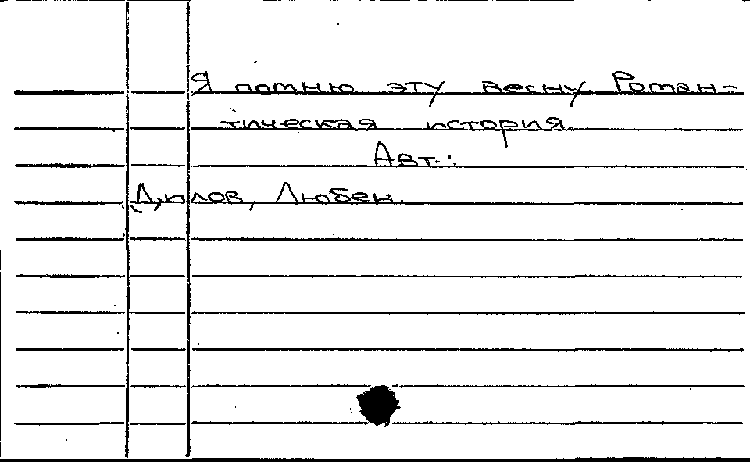 Я помню эту весну Роман-
тическая история.
Авт.:
Дилов, Любен.